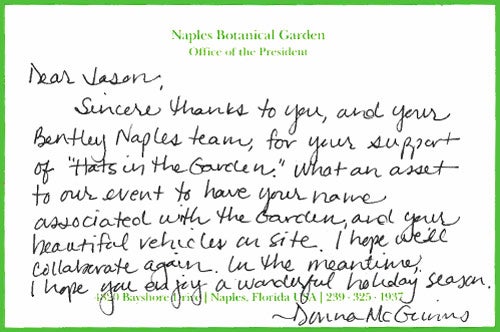 Naples Botanical Garden
Office of the President
Dear Jason,
Sincere thanks to you, and your
Bentley Naples team, for your support
of "Hats in the Garden." What an asset
to our event to have your name
associated with the Garden, and your
beautiful vehicles on site. I hope we'll
collaborate again. In the meantime,
I hope you enjoy a wonderful holiday season.
4820 Bayshore Drive | Naples, Florida USA | 239 - 325 - 1937
~Donna McGinnis